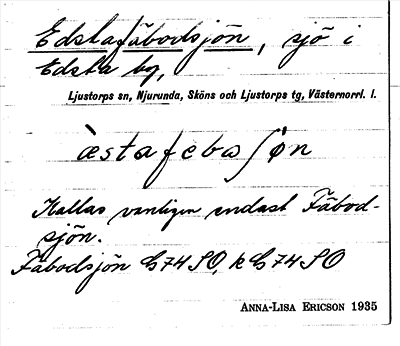 Edstafäbodsjön, sjö i
Edsta by,
Ljustorps sn, Njurunda, Sköns och Ljustorps tg, Västernorrl. l.
æ̀stafebaʃøn
Kallas vanligen endast Fäbod-
sjön.
Fäbodsjön G74SO, k G74SO
ANNA-LISA ERICSON 1935